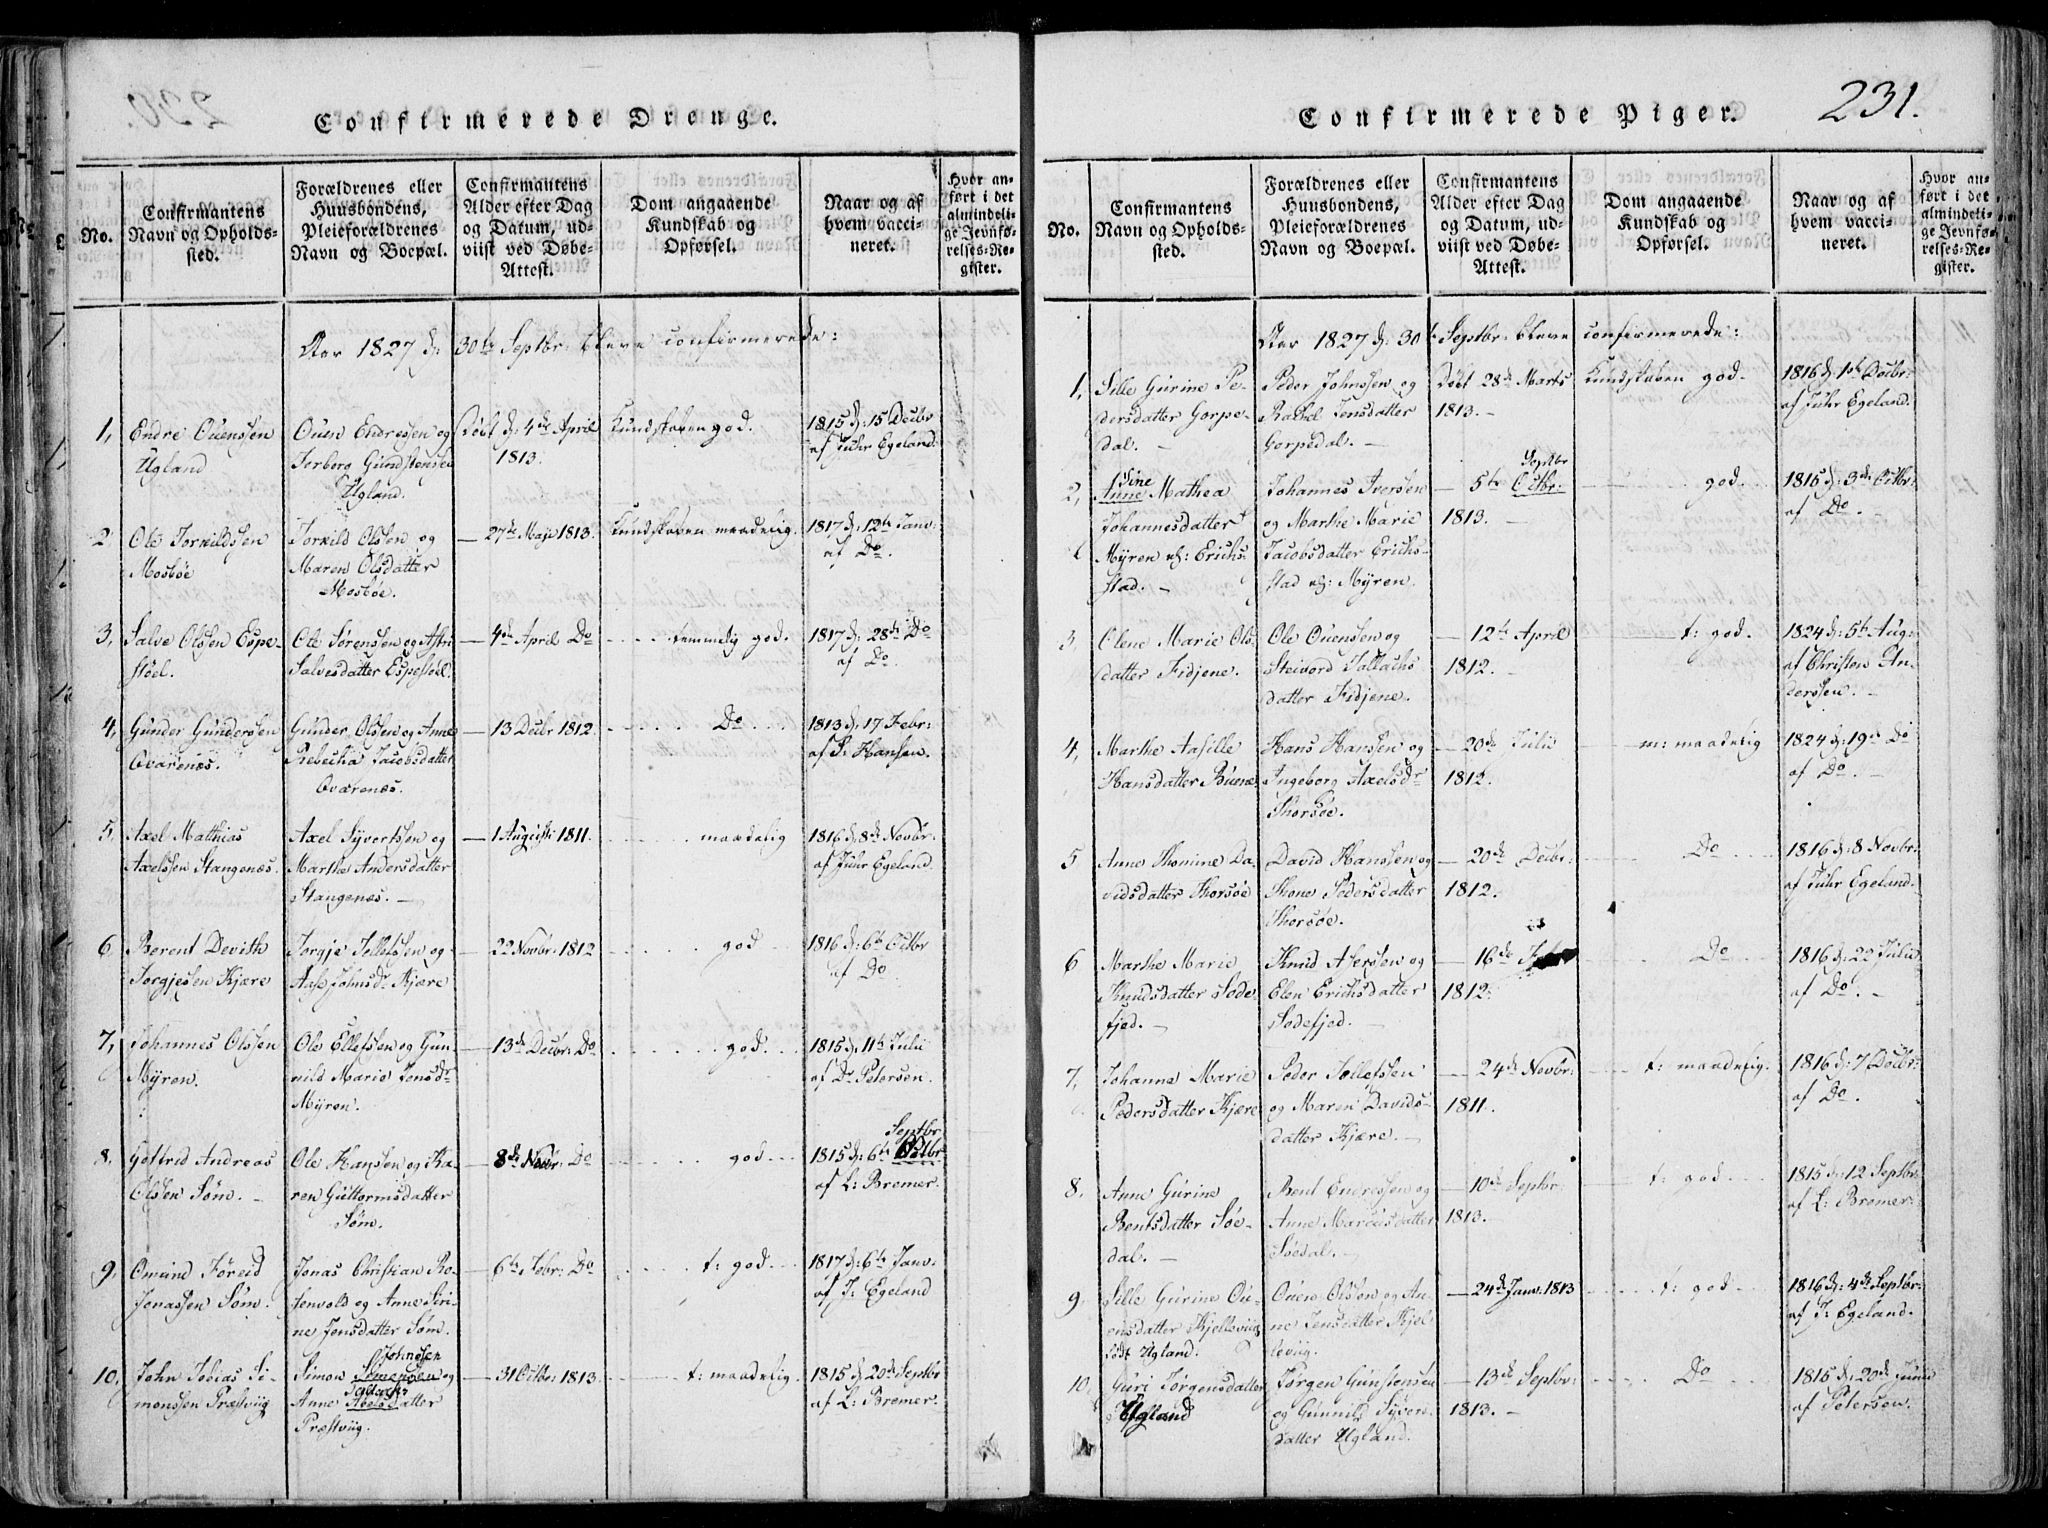 Confirmerede Drenge.
No.
Confirmantens Navn og Opholds-sted.
Forældrenes eller Huusbondens, Pleieforældrenes Navn og Boepæl.
Confirmantens Alder efter Dag og Datum, ud-viist ved Døbe-Attest.
Dom angaaende Kundskab og Opførsel.
Naar og af hvem vacci-neret.
Hvor an-ført i det almindeli-ge Jevnfø-relses-Re-gister.
Aar 1827 d: 30te Septbr: bleve confirmerede:
1, Endre Ouenssen Ugland
Ouen Endressen og Torborg Gundstensen Ugland.
Født d: 4de April 1813.
Kundskaben god.
1815 d: 15 Decbr af Juhr Egeland.
2 Ole Torkildsen Mosbøe
Torkild Olsen og Maren Olsdatter Mosbøe.
— 27de Maji 1813.
Kundskaben maadelig.
1817 d: 12te Janv: af Do.
3, Salve Olsen Espe-støel.
Ole Sørenssen og Astri Salvesdatter Espestøel.
— 4de April Do
temmelig god.
1817 d: 28de Do af Do.
4, Gunder Gunderssen Qvarenæs.
Gunder Olssen og Anne Rebecha Jacobsdatter Qvarenæs.
— 13 Decbr 1812.
Do
1813 d: 17 Febr: af P: Hansen.
5, Axel Matthias Axelssen Stangenæs.
Axel Syvertsen og Marthe Andersdatter Stangenæs. —
— 1 Augusti 1811.
maadelig
1816 d: 8de Novbr. af Juhr Egeland
6 Berent Devith Torgjesen Kjære
Torgje Tellefsen og Aase Johnsdr Kjære
— 22 Novbr: 1812
god
1816 d: 6te Octbr af Do
7, Johannes Olssen Myren.
Ole Ellefsen og Gun-nild Marie Jensdr Myren.
— 13de Decbr: Do
god.
1815 d: 11te Julii af Dr Petersen.
8. Gotfrid Andreas Olssen Søm. —
Ole Hanssen og Ka-ren Guttormsdatter Søm.
— 8de Novbr: Do
god
1815 d: 6te Octbr Septbr af L: Bremer.
9, Omund Føreid Jonassen Søm.
Jonas Christian Ro-senvold og Anne Siri-ne Jensdatter Søm.
— 6te Febr: Do
t: god
1817 d: 6te Janv: af J: Egeland
10, John Tobias Si-monssen Præstviig
Simon Simensen Johnssen og Anne Abelsdatter Præstviig.
— 31 Octbr: 1813.
t: maadelig.
1815 d: 20de Septbr af L: Bremer.
Confirmerede Piger.
231.
No.
Confirmantens Navn og Opholds-sted.
Forældrenes eller Huusbondens, Pleieforældrenes Navn og Boepæl.
Confirmantens Alder efter Dag og Datum, ud-viist ved Døbe-Attest.
Dom angaaende Kundskab og Opførsel.
Naar og af hvem vacci-neret.
Hvor an-ført i det almindeli-ge Jevnfø-relses-Re-gister.
Aar 1827 d: 30te Septbr: bleve confirmerede:
1, Sille Gurine Pe-dersdatter Gorpe-dal. —
Peder Johnssen og Rachel Jensdatter Gorpedal. —
Født 28de Marts 1813. —
Kundskaben god.
1816 d: 1ste Decbr: af Juhr Egeland.
2, Anne Sine Mathea Johannesdatter Myren og: Erichs-stad. —
Johannes Iversen og Marthe Marie Jacobsdatter Erich-stad og: Myren.
— 5te Octbr: Septbr 1813. —
god.
1815 d: 3de Octbr: af Do. —
3, Olene Marie Ols-datter Fidjene.
Ole Ouenssen og Steivord Tallachs-datter Fidjene.
— 12te April 1812. —
t: god.
1824 d: 5te Aug: af Christen An-derssen. —
4, Marthe Aasille Hansdatter Buenæs
Hans Hanssen og Ingeborg Axelsdr Thorsøe.
— 20de Julii 1812.
m: maadelig
1824 d: 19de Do af Do. —
5 Anne Thomine Da-vidsdatter Thorsøe
David Hanssen og Thone Pedersdatter Thorsøe.
— 20de Decbr: 1812.
Do
1816 d: 8 Novbr: af Juhr Egeland.
6 Marthe Marie Knudsdatter Sode-fjed. —
Knud Aserssen og Elen Erichsdatter Sodefjed. —
— 16de 1812.
Do
1816 d: 22 Julii af Do. —
7, Johanne Marie Pedersdatter Kjære
Peder Tellefssen og Maren Davids-datter Kjære. —
— 24de Novbr: 1811.
t: maadelig.
1816 d: 7 Decbr: af Do.
8. Anne Gurine Bentsdatter Søe-dal. —
Bent Endressen og Anne Marcusdatter Søedal. —
— 10de Septbr. 1813. —
t: god
1815 d: 12 Septbr: af L: Bremer.
9, Sille Gurine Ou-ensdatter Kjelleviig født Ugland.
Ouen Olssen og An-ne Jensdatter Kjel-leviig.
— 24de Janv. 1813
t: god
1816 d: 4de Septbr: af J: Egeland.
10, Guri Jørgensdatter Ugland
Jørgen Gunstensen og Gunnild Syvers-datter Ugland.
— 13de Septbr: 1813. —
Do
1815 d: 20de Junii af Petersen.